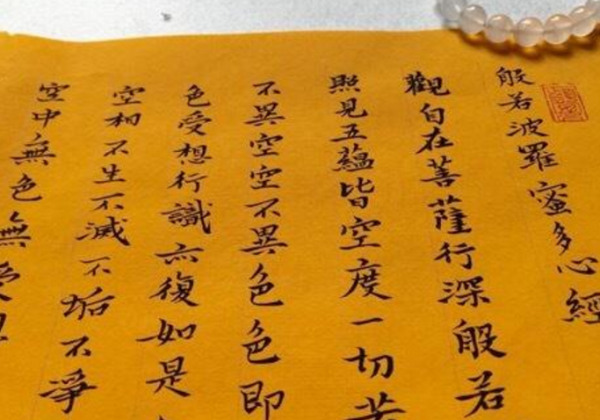 般若波羅蜜多心經
觀自在菩薩行深般若
照見五蘊皆空度一切苦
不異空空不異色色即
色受想行識亦復如是
空相不生不滅不垢不爭
空中無色無受